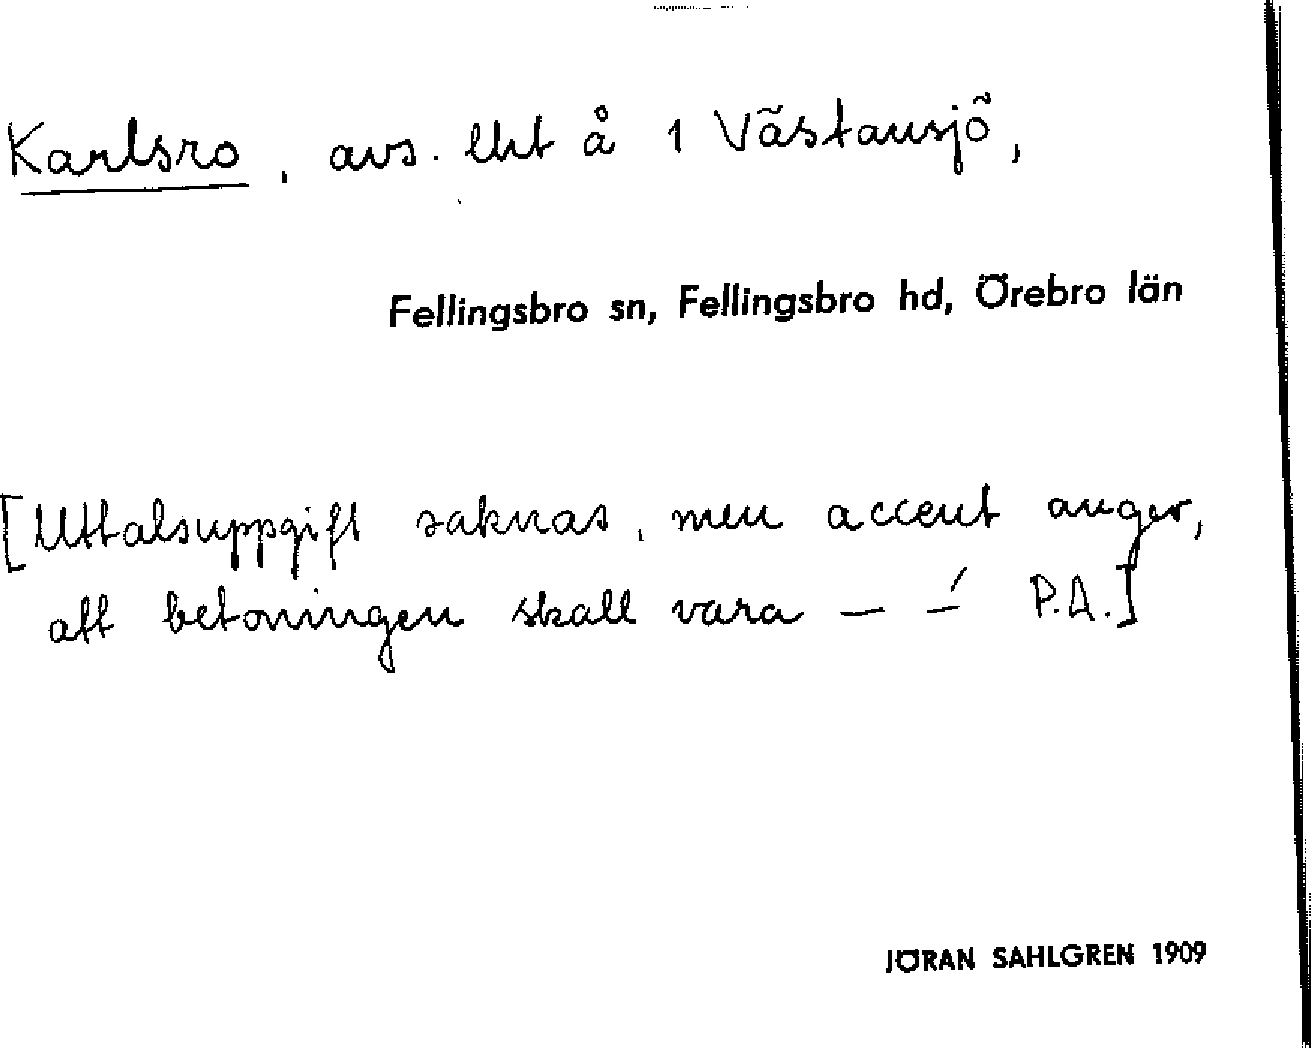 Karlsro, avs. lht å 1 Västansjö,
Fellingsbro sn, Fellingsbro hd, Örebro län
[Uttalsuppgift saknas, men accent anger,
att betoningen skall vara — —́ P.A.]
JÖRAN SAHLGREN 1909